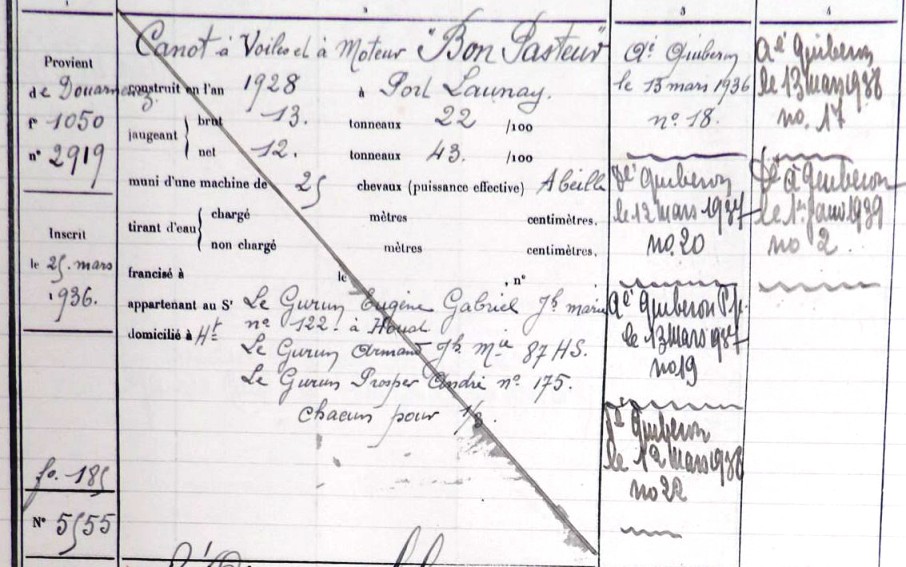 3
4
Provient
de Douarnenez.
fº 1050
nº 2919
Inscrit
le 25 mars
1936.
fo. 185
Nº 5555
Canot à Voiles et à Moteur "Bon Pasteur"
construit en l'an 1928 à Port Launay.
jaugeant
brut 13. tonneaux 22 /100
net 12. tonneaux 43. /100
muni d'une machine de 25 chevaux (puissance effective) Abeille
tirant d'eau
chargé mètres centimètres.
non chargé mètres centimètres.
francisé à le , nº .
appartenant au Sr Le Gurun Eugène Gabriel Jh marie
domicilié à Ht nº 122. à Houat
Le Gurun Armand Jh Mie 87 HS.
Le Gurun Prosper André nº 175.
chacun pour 1/3.
Qé Quiberon
le 13 mars 1936
nº 18.
Dé Quiberon
le 12 mars 1937
no 20
Aé Quiberon
le 13 Mars 1937
no 19
Dé Quiberon
le 12 Mars 1938
no 22
Aé Quiberon
le 13 mars 1938
no. 17
Dé à Quiberon
le 1er Janv 1939
no 2.